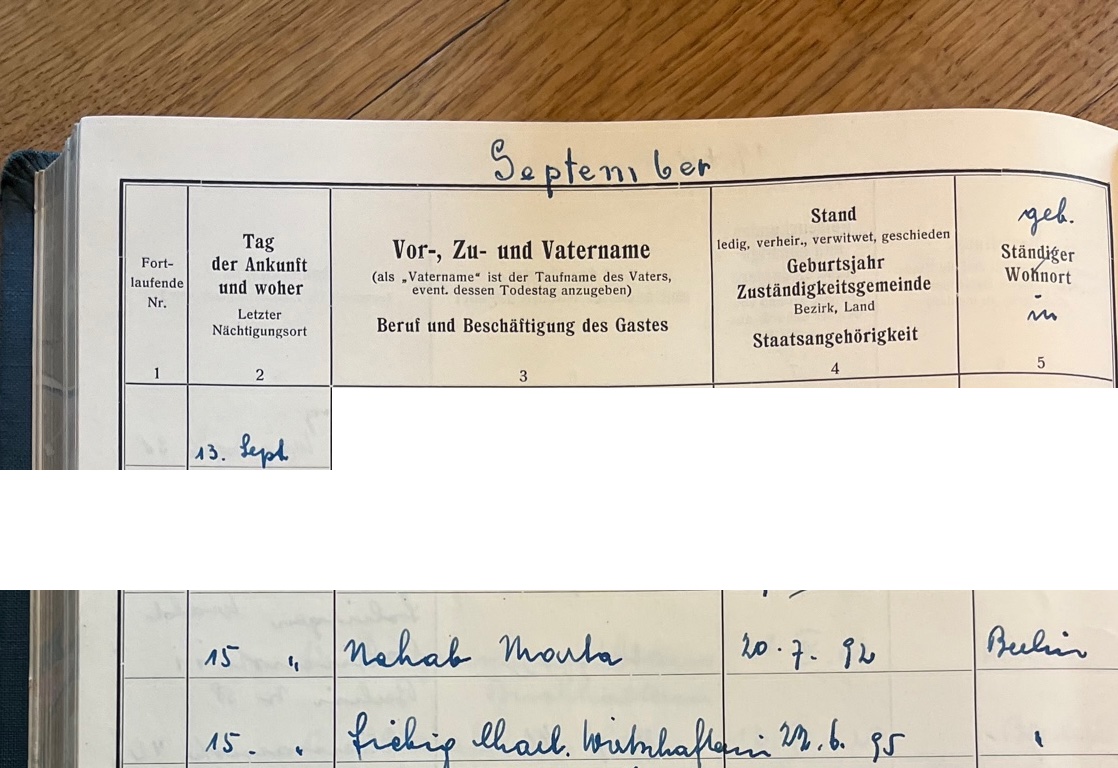 September
Fort-
laufende
Nr.
1
Tag
der Ankunft
und woher
Letzter
Nächtigungsort
2
Vor-, Zu- und Vatername
(als „Vatername“ ist der Taufname des Vaters,
event. dessen Todestag anzugeben)
Beruf und Beschäftigung des Gastes
3
Stand
ledig, verheir., verwitwet, geschieden
Geburtsjahr
Zuständigkeitsgemeinde
Bezirk, Land
Staatsangehörigkeit
4
geb.
Ständiger
Wohnort
in
5
13. Sept
15 " Nahab 20. 7. 92 Berlin
15. " Fiebig Wirtschafterin 22. 6. 95 "